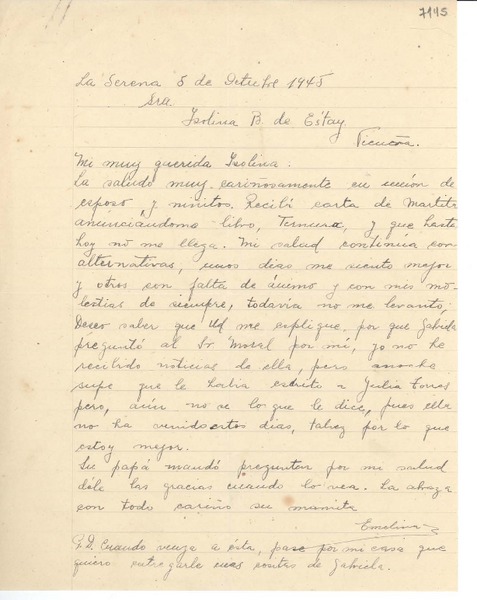 7145
La Serena 5 de Octubre 1945
Sra
Isolina B. de Estay
Vicuña.
Mi muy querida Isolina:
La saludo muy cariñosamente en unión de
esposo y niñitos. Recibí carta de Martita
anunciándome libro, Ternura, y que hasta
hoy no me llega. Mi salud continúa con
alternativas, unos dias me siento mejor
y otros con falta de ánimo y con mis mo-
lestias de siempre, todavía no me levanto;
Deseo saber que Ud me esplique por que Gabriela
preguntó al Sr Moral por mi, yo no he
recibido noticias de ella, pero anoche
supe que le habia escrito a Julia Torres
pero, aún no se lo que le dice, pues ella
no ha venido estos dias, talvez por lo que
estoy mejor.
Su papá mandó preguntar por mi salud
déle las gracias cuando lo vea. La abraza
con todo cariño su mamita
Emelina
P.D. Cuando venga a ésta, pase por mi casa que
quiero entregarle unas cositas de Gabriela.